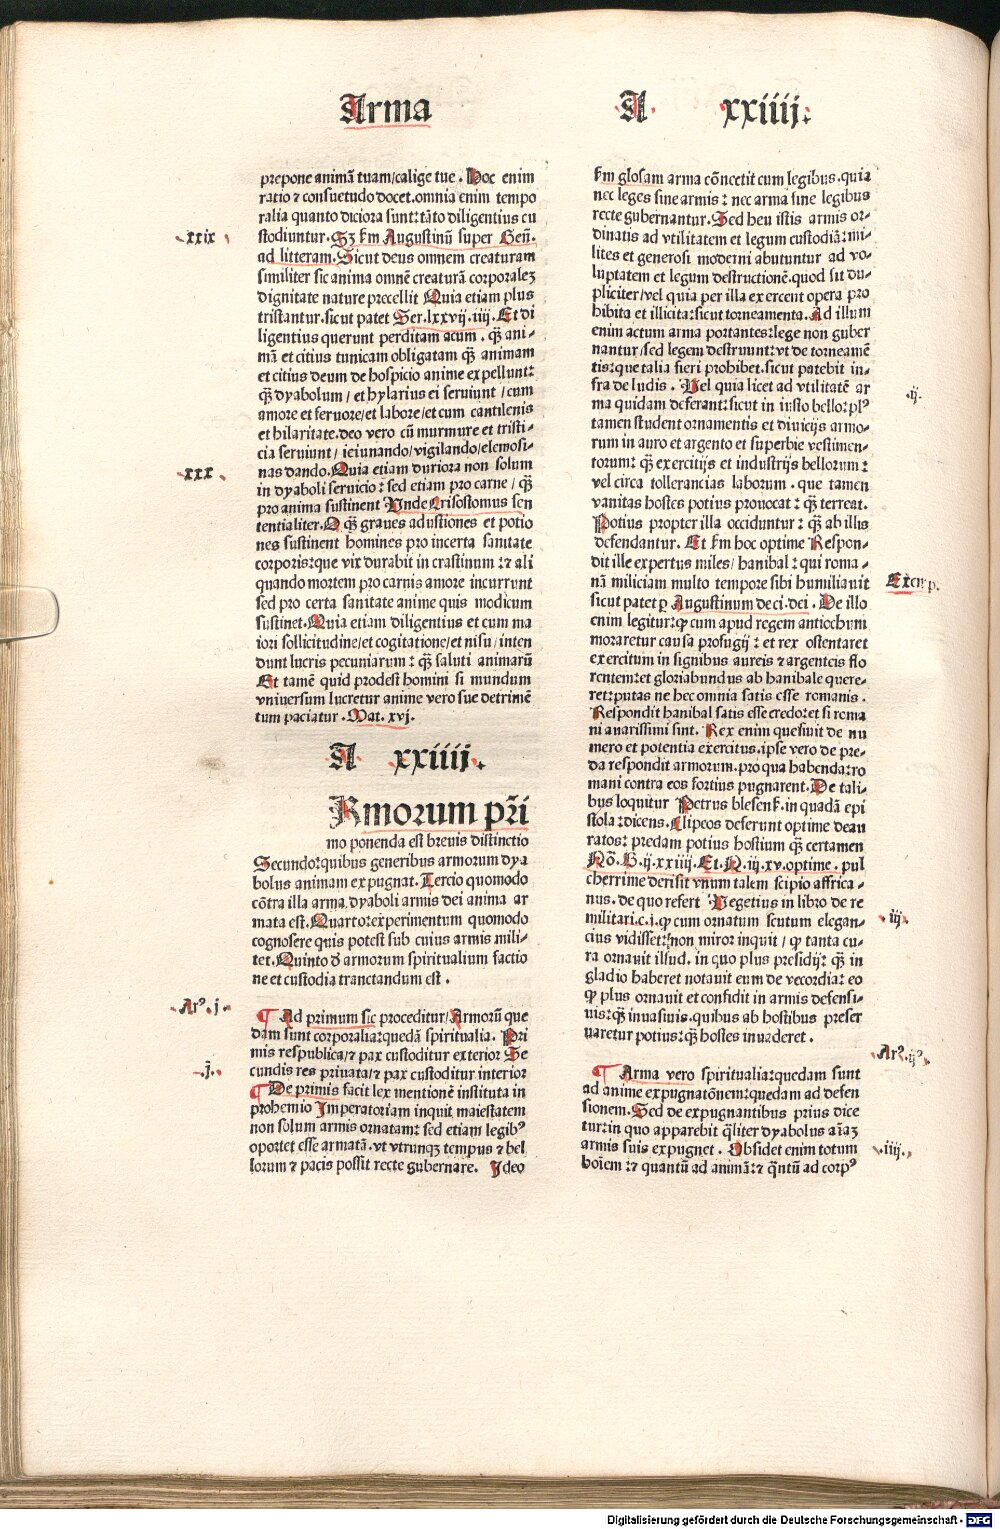 Arma
A xxiiij.
prepone animā tuam/calige tue. Hoc enim
ratio ⁊ consuetudo docet.omnia enim tempo
ralia quanto diciora sunt:tāto diligentius cu
.xxix
stodiuntur. Sꝫ ẜm Augustinū super Geñ.
ad litteram. Sicut deus omnem creaturam
similiter sic anima omnē creaturā corporaleꝫ
dignitate nature precellit Quia etiam plus
tristantur.sicut patet Ser.lxxvij.iiij. Et di
ligentius querunt perditam acum. qꝫ ani-
mā et citius tunicam obligatam qꝫ animam
et citius deum de hospicio anime expellunt:
qꝫ dyabolum/et hylarius ei seruiunt/cum
amore et feruore/et labore/et cum cantilenis
et hilaritate.deo vero cū murmure et tristi-
cia seruiunt/ieiunando/vigilando/elemosi-
.xxx.
nas dando. Quia etiam duriora non solum
in dyaboli seruicio: sed etiam pro carne/qꝫ
pro anima sustinent Unde Crisostomus sen
tentialiter. O qꝫ graues adustiones et potio
nes sustinent homines pro incerta sanitate
corporis:que vix durabit in crastinum:⁊ ali
quando mortem pro carnis amore incurrunt
sed pro certa sanitate anime quis modicum
sustinet. Quia etiam diligentius et cum ma
iori sollicitudine/et cogitatione/et nisu/inten
dunt lucris pecuniarum: qꝫ saluti animarū
Et tamē quid prodest homini si mundum
vniuersum lucretur anime vero sue detrimē
tum paciatur. Mat. xvj.
A xxiiij.
Rmorum pr̄i
mo ponenda est breuis distinctio
Secundo:quibus generibus armorum dya
bolus animam expugnat. Tercio quomodo
cōtra illa arma dyaboli armis dei anima ar
mata est. Quarto:experimentum quomodo
cognoscere quis potest sub cuius armis mili-
tet. Quinto d̄ armorum spiritualium factio
ne et custodia tranctandum est.
.Arꝰ.j.
¶ Ad primum sic proceditur/Armorū que
dam sunt corporalia:quedā spiritualia. Pri
mis respublica/⁊ pax custoditur exterior Se
.j.
cundis res priuata/⁊ pax custoditur interior
¶ De primis facit lex mentionē instituta in
prohemio Imperatoriam inquit maiestatem
non solum armis ornatam: sed etiam legibꝰ
oportet esse armatā.vt vtrunqꝫ tempus ⁊ bel
lorum ⁊ pacis possit recte gubernare. Ideo
ẜm glosam arma cōnectit cum legibus.quia
nec leges sine armis: nec arma sine legibus
recte gubernantur. Sed heu istis armis or-
dinatis ad vtilitatem et legum custodiā:mi-
lites et generosi moderni abutuntur ad vo-
luptatem et legum destructionē.quod fit du-
pliciter/vel quia per illa exercent opera pro
hibita et illicita:sicut torneamenta. Ad illum
enim actum arma portantes:lege non guber
nantur/sed legem destruunt:vt de torneamē
tis:que talia fieri prohibet.sicut patebit in-
fra de ludis. Vel quia licet ad vtilitatē ar
.ij.
ma quidam deferant:sicut in iusto bello:plꝰ
tamen student ornamentis et diuicijs armo-
rum in auro et argento et superbie vestimen-
torum: qꝫ exercitijs et industrijs bellorum:
vel circa tollerancias laborum. que tamen
vanitas hostes potius prouocat: qꝫ terreat.
Potius propter illa occiduntur: qꝫ ab illis
defendantur. Et ẜm hoc optime Respon-
dit ille expertus miles/hanibal: qui roma-
Exemp.
nā miliciam multo tempore sibi humiliauit
sicut patet ꝑ Augustinum de ci.dei. De illo
enim legitur:ꝙ cum apud regem antiochum
moraretur causa profugij: et rex ostentaret
exercitum in signibus aureis ⁊ argenteis flo
rentem:et gloriabundus ab hanibale quere-
ret:putas ne hec omnia satis esse romanis.
Respondit hanibal satis esse credo:et si roma
ni auarissimi sunt. Rex enim quesiuit de nu
mero et potentia exercitus.ipse vero de pre-
da respondit armorum.pro qua habenda:ro
mani contra eos fortius pugnarent. De tali-
bus loquitur Petrus blesenẜ. in quadā epi
stola:dicens. Clipeos deferunt optime deau
ratos: predam potius hostium qꝫ certamen
Nō. B.ij.xxiiij. Et. N.iij.xv.optime. pul
cherrime derisit vnum talem scipio affrica-
nus. de quo refert Vegetius in libro de re
.iij.
militari.c.j.ꝙ cum ornatum scutum elegan-
cius vidisset:non miror inquit/ꝙ tanta cu-
ra ornauit illud. in quo plus presidij: qꝫ in
gladio haberet notauit eum de vecordia: eo
ꝙ plus ornauit et confidit in armis defensi-
uis: qꝫ inuasiuis.quibus ab hostibus preser
uaretur potius: qꝫ hostes inuaderet.
.Arꝰ.ijꝰ.
¶ Arma vero spiritualia:quedam sunt
ad anime expugnatōnem:quedam ad defen
sionem. Sed de expugnantibus prius dice
tur:in quo apparebit qͣliter dyabolus aīaꝫ
.iiij.
armis suis expugnet. Obsidet enim totum
hoīem:⁊ quantū ad animā:⁊ q̄ntū ad corpꝰ
Digitalisierung gefördert durch die Deutsche Forschungsgemeinschaft - DFG